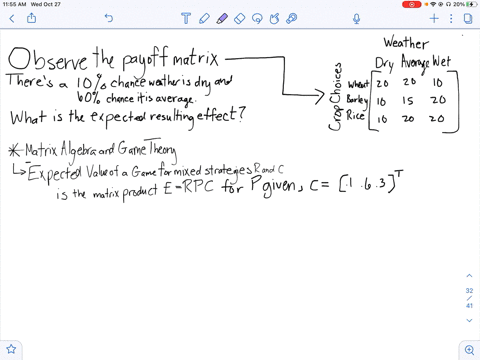 11:55 AM Wed Oct 27
20%
Observe the payoff matrix
There's a 10% chance weather is dry and
60% chance it is average.
What is the expected resulting effect?
Weather
Dry Average Wet
Crop Choices
Wheat 20 20 10
Barley 10 15 20
Rice 10 20 20
* Matrix Algebra and Game Theory
↳ Expected Value of a Game for mixed strategies R and C
is the matrix product E=RPC for P given, C = [.1 .6 .3]^T
32
/
41